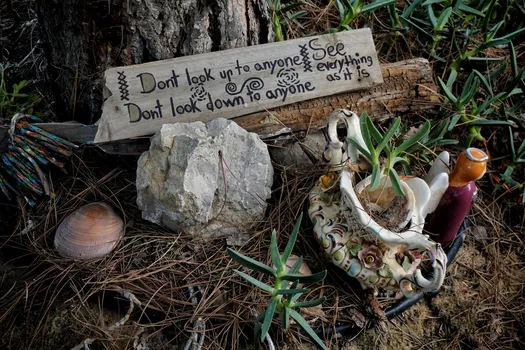 Dont look up to anyone
Dont look down to anyone
See
everything
as it is